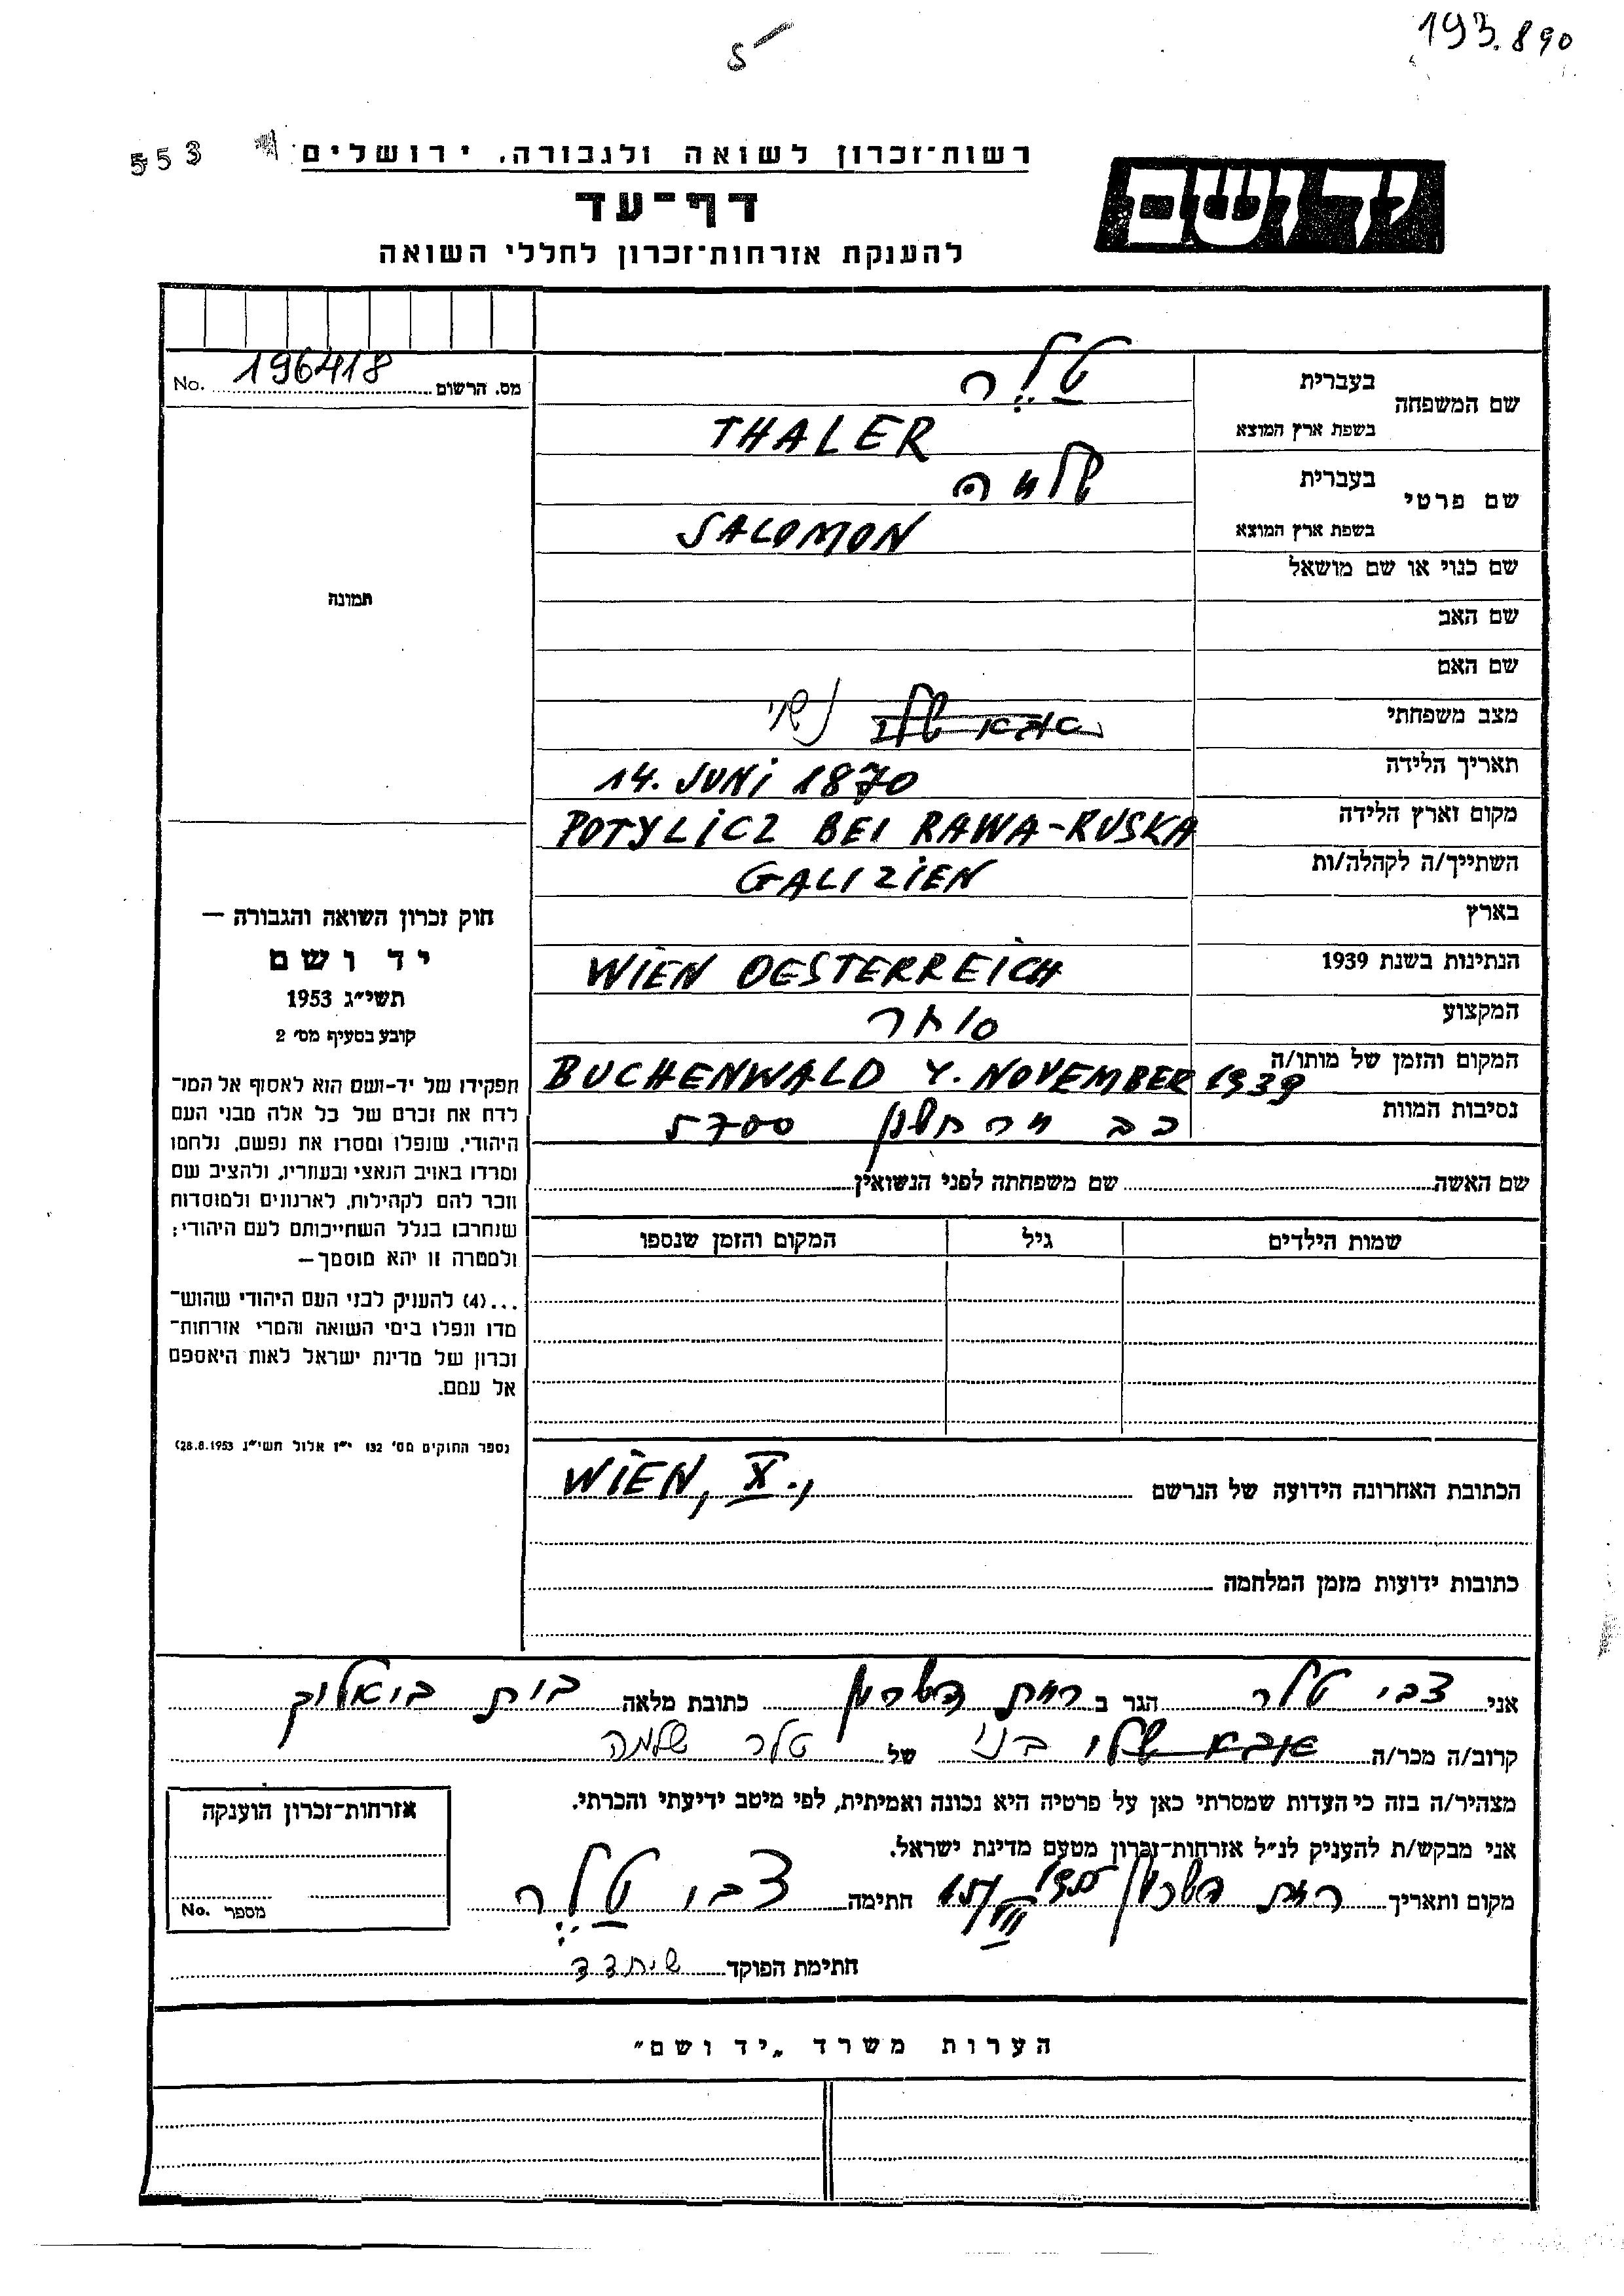 193.890
5
553
רשות־זכרון לשואה ולגבורה, ירושלים
יד ושם
דף־עד
להענקת אזרחות־זכרון לחללי השואה
מס. הרשום 196418 No.
שם המשפחה
בעברית טלר
בשפת ארץ המוצא THALER
שם פרטי
בעברית שלמה
בשפת ארץ המוצא SALOMON
שם כנוי או שם מושאל
שם האב
שם האם
מצב משפחתי אבא שלי נשוי
תאריך הלידה 14. JUNI 1870
מקום וארץ הלידה POTYLICZ BEI RAWA-RUSKA
השתייך/ה לקהלה/ות GALIZIEN
בארץ
הנתינות בשנת 1939 WIEN OESTERREICH
המקצוע סוחר
המקום והזמן של מותו/ה BUCHENWALD 4. NOVEMBER 1939
נסיבות המוות כב מרחשון 5700
תמונה
חוק זכרון השואה והגבורה —
יד ושם
תשי״ג 1953
קובע בסעיף מס׳ 2
תפקידו של יד-ושם הוא לאסוף אל המו־
לדת את זכרם של כל אלה מבני העם
היהודי, שנפלו ומסרו את נפשם, נלחמו
ומרדו באויב הנאצי ובעוזריו, ולהציב שם
וזכר להם לקהילות, לארגונים ולמוסדות
שנחרבו בגלל השתייכותם לעם היהודי;
ולמטרה זו יהא מוסמך —
...(4) להעניק לבני העם היהודי שהוש־
מדו ונפלו בימי השואה והמרי אזרחות־
זכרון של מדינת ישראל לאות היאספם
אל עמם.
(ספר החוקים מס׳ 132 י״ז אלול תשי״ג 28.8.1953)
שם האשה שם משפחתה לפני הנשואין
שמות הילדים גיל המקום והזמן שנספו
הכתובת האחרונה הידועה של הנרשם WIEN, X.,
כתובות ידועות מזמן המלחמה
אני צבי טלר הגר ב רמת השרון כתובת מלאה
קרוב/ה מכר/ה אבא שלי בני של טלר שלמה
מצהיר/ה בזה כי העדות שמסרתי כאן על פרטיה היא נכונה ואמיתית, לפי מיטב ידיעתי והכרתי.
אני מבקש/ת להעניק לנ״ל אזרחות־זכרון מטעם מדינת ישראל.
מקום ותאריך רמת השרון חתימה צבי טלר
חתימת הפוקד
אזרחות־זכרון הוענקה
מספר No.
הערות משרד „יד ושם״